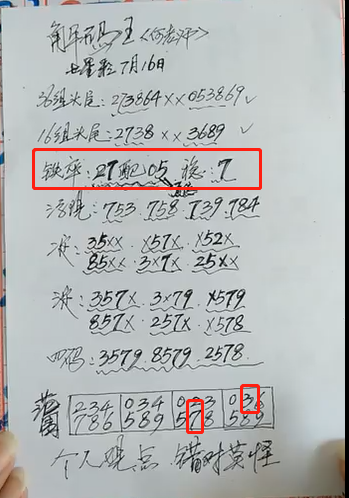 角平码王《何老师》
七星彩7月16日
36组头尾:273864××053869✓
16组头尾:2738××3689✓
铁率:27配05 稳:7
753.758.739.784
定:35××.×57×.×52×
85××.3×7×.25××
定:357×.3×79.×579
857×.257×.×578
四码:3579.8579.2578.
234 034 023 036
786 589 578 589
个人观点.错对莫怪